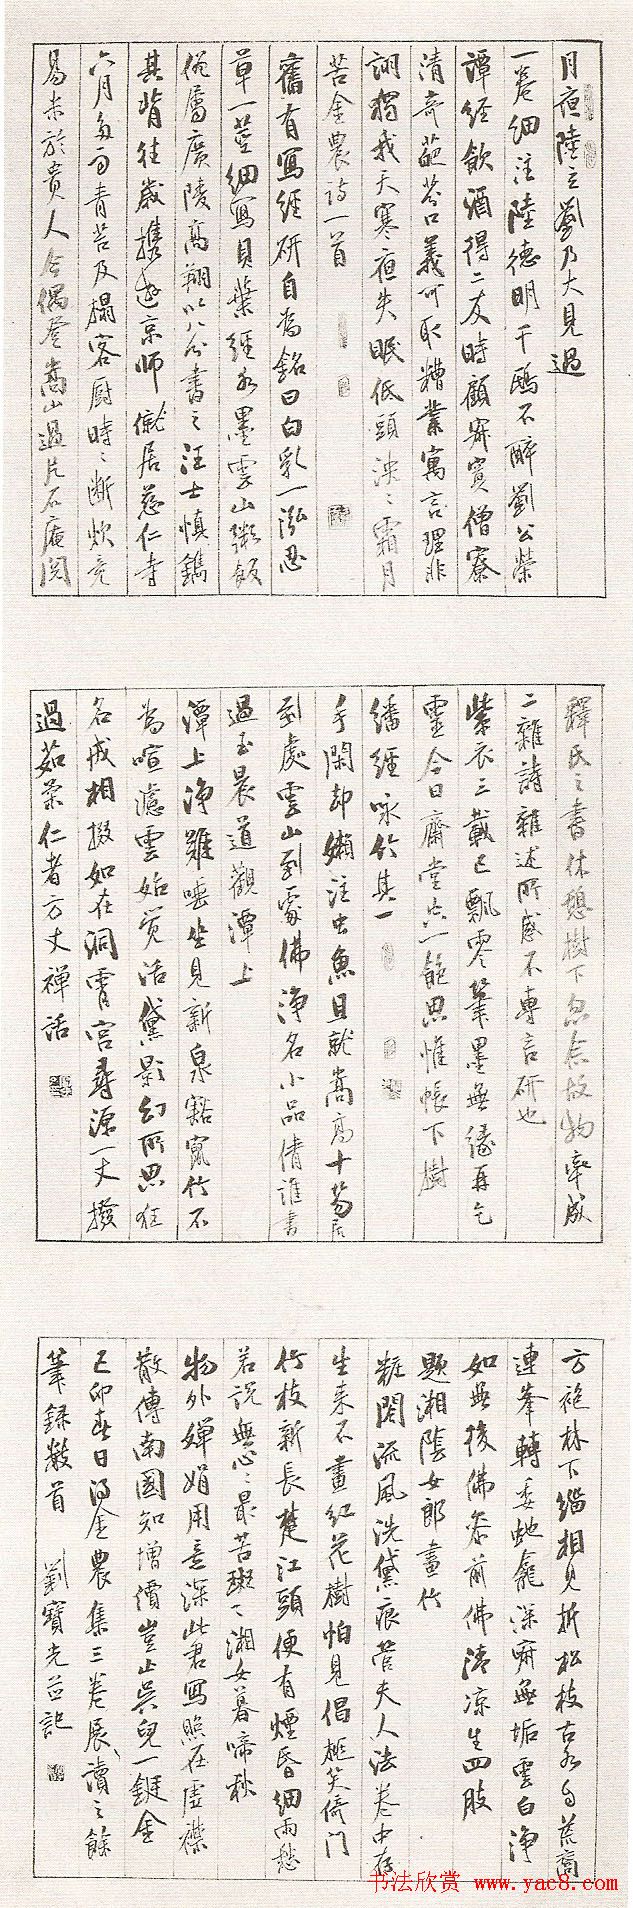 月夜陸立劉乃大見過
一卷細注陸德明千鷗不醉劉公榮
譚經飲酒得二友時顧寂寞僧寮
清奇葩芬口義可取糟粕寓言理非
詡獨我天寒夜失眠低頭泱泱霜月
苦金農詩一首
舊有寫經研自為銘曰白乳一泓忍
草一莖細寫貝葉經水墨雲山粥飯
僧屬廣陵高翔以八分書之汪士慎鐫
其背往歲攜遊京師僦居慈仁寺
六月多雨青苔及榻客廚時時斷炊竟
易米於貴人今偶登嵩山過片石庵閱
釋氏之書休憩樹下忽念故物率成
二雜詩雜述所感不專言研也
紫衣三載已飄零筆墨無緣再乞
靈今日齋堂共一飽思惟帳下樹
繙經咏竹其一
手閑却懶注虫魚且就嵩高十笏居
到處雲山到處佛淨名小品倩誰書
過玉晨道觀潭上
潭上淨難唾坐見新泉谿竄竹不
為喧濾雲始覺活黛影幻所思狂
名戒相掇如在洞霄宮尋源一丈撥
過茹菜仁者方丈禪話
方袍林下緇相見折松枝古水自荒裔
連峯轉委蛇龕深窟無垢雲白淨
如無後佛參前佛清涼生四肢
題湘陰女郎畫竹
粧閣流風洗黛痕管夫人法卷中存
生来不畫紅花樹怕見倡桃笑倚門
竹枝新長楚江頭便有煙昏細雨愁
若說無心心最苦斑斑湘女暮啼秋
物外嬋娟用意深此君寫照在虛襟
散傳南國知增價豈止吳兒一鋌金
己卯春日得金農集三卷展讀之餘
筆錄數首 劉寶光并記
书法欣赏 www.yac8.com